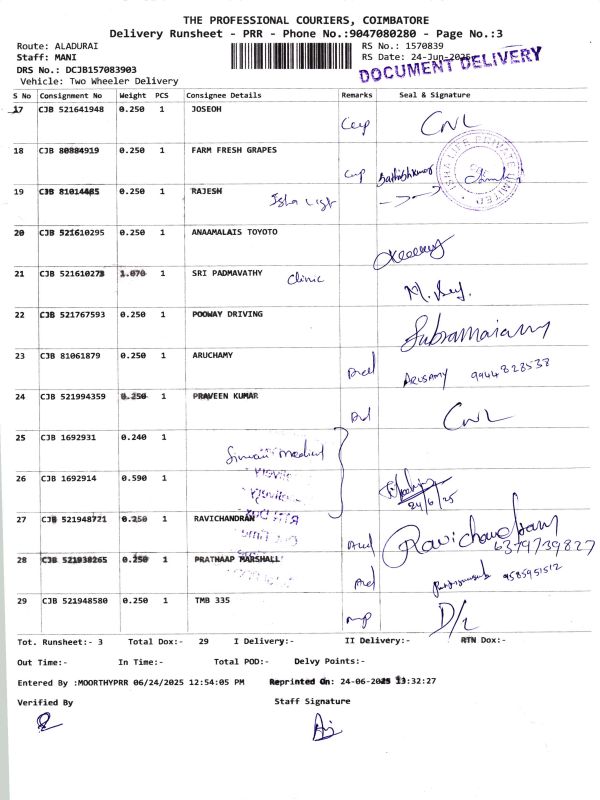 THE PROFESSIONAL COURIERS, COIMBATORE
Delivery Runsheet - PRR - Phone No.:9047080280 - Page No.:3
Route: ALADURAI
RS No.: 1570839
Staff: MANI
RS Date: 24-Jun-2025
DRS No.: DCJB157083903
DOCUMENT DELIVERY
Vehicle: Two Wheeler Delivery
S No Consignment No Weight PCS Consignee Details Remarks Seal & Signature
17 CJB 521641948 0.250 1 JOSEOH CNL
18 CJB 80884919 0.250 1 FARM FRESH GRAPES Sathishkumar
ISHA LIFE PRIVATE LIMITED
19 CJB 81014485 0.250 1 RAJESH Isha
20 CJB 521610295 0.250 1 ANAAMALAIS TOYOTO
21 CJB 521610273 1.070 1 SRI PADMAVATHY Clinic
22 CJB 521767593 0.250 1 POOWAY DRIVING Subramaiamy
23 CJB 81061879 0.250 1 ARUCHAMY ARUSAMY 9944828538
24 CJB 521994359 0.250 1 PRAVEEN KUMAR CNL
25 CJB 1692931 0.240 1
medical
26 CJB 1692914 0.590 1
24/6/25
27 CJB 521948721 0.250 1 RAVICHANDRAN Ravichandran
6379739827
28 CJB 521938265 0.250 1 PRATHAAP MARSHALL 9585951512
29 CJB 521948580 0.250 1 TMB 335
Tot. Runsheet:- 3 Total Dox:- 29 I Delivery:- II Delivery:- RTN Dox:-
Out Time:- In Time:- Total POD:- Delvy Points:-
Entered By :MOORTHYPRR 06/24/2025 12:54:05 PM Reprinted On: 24-06-2025 13:32:27
Verified By Staff Signature